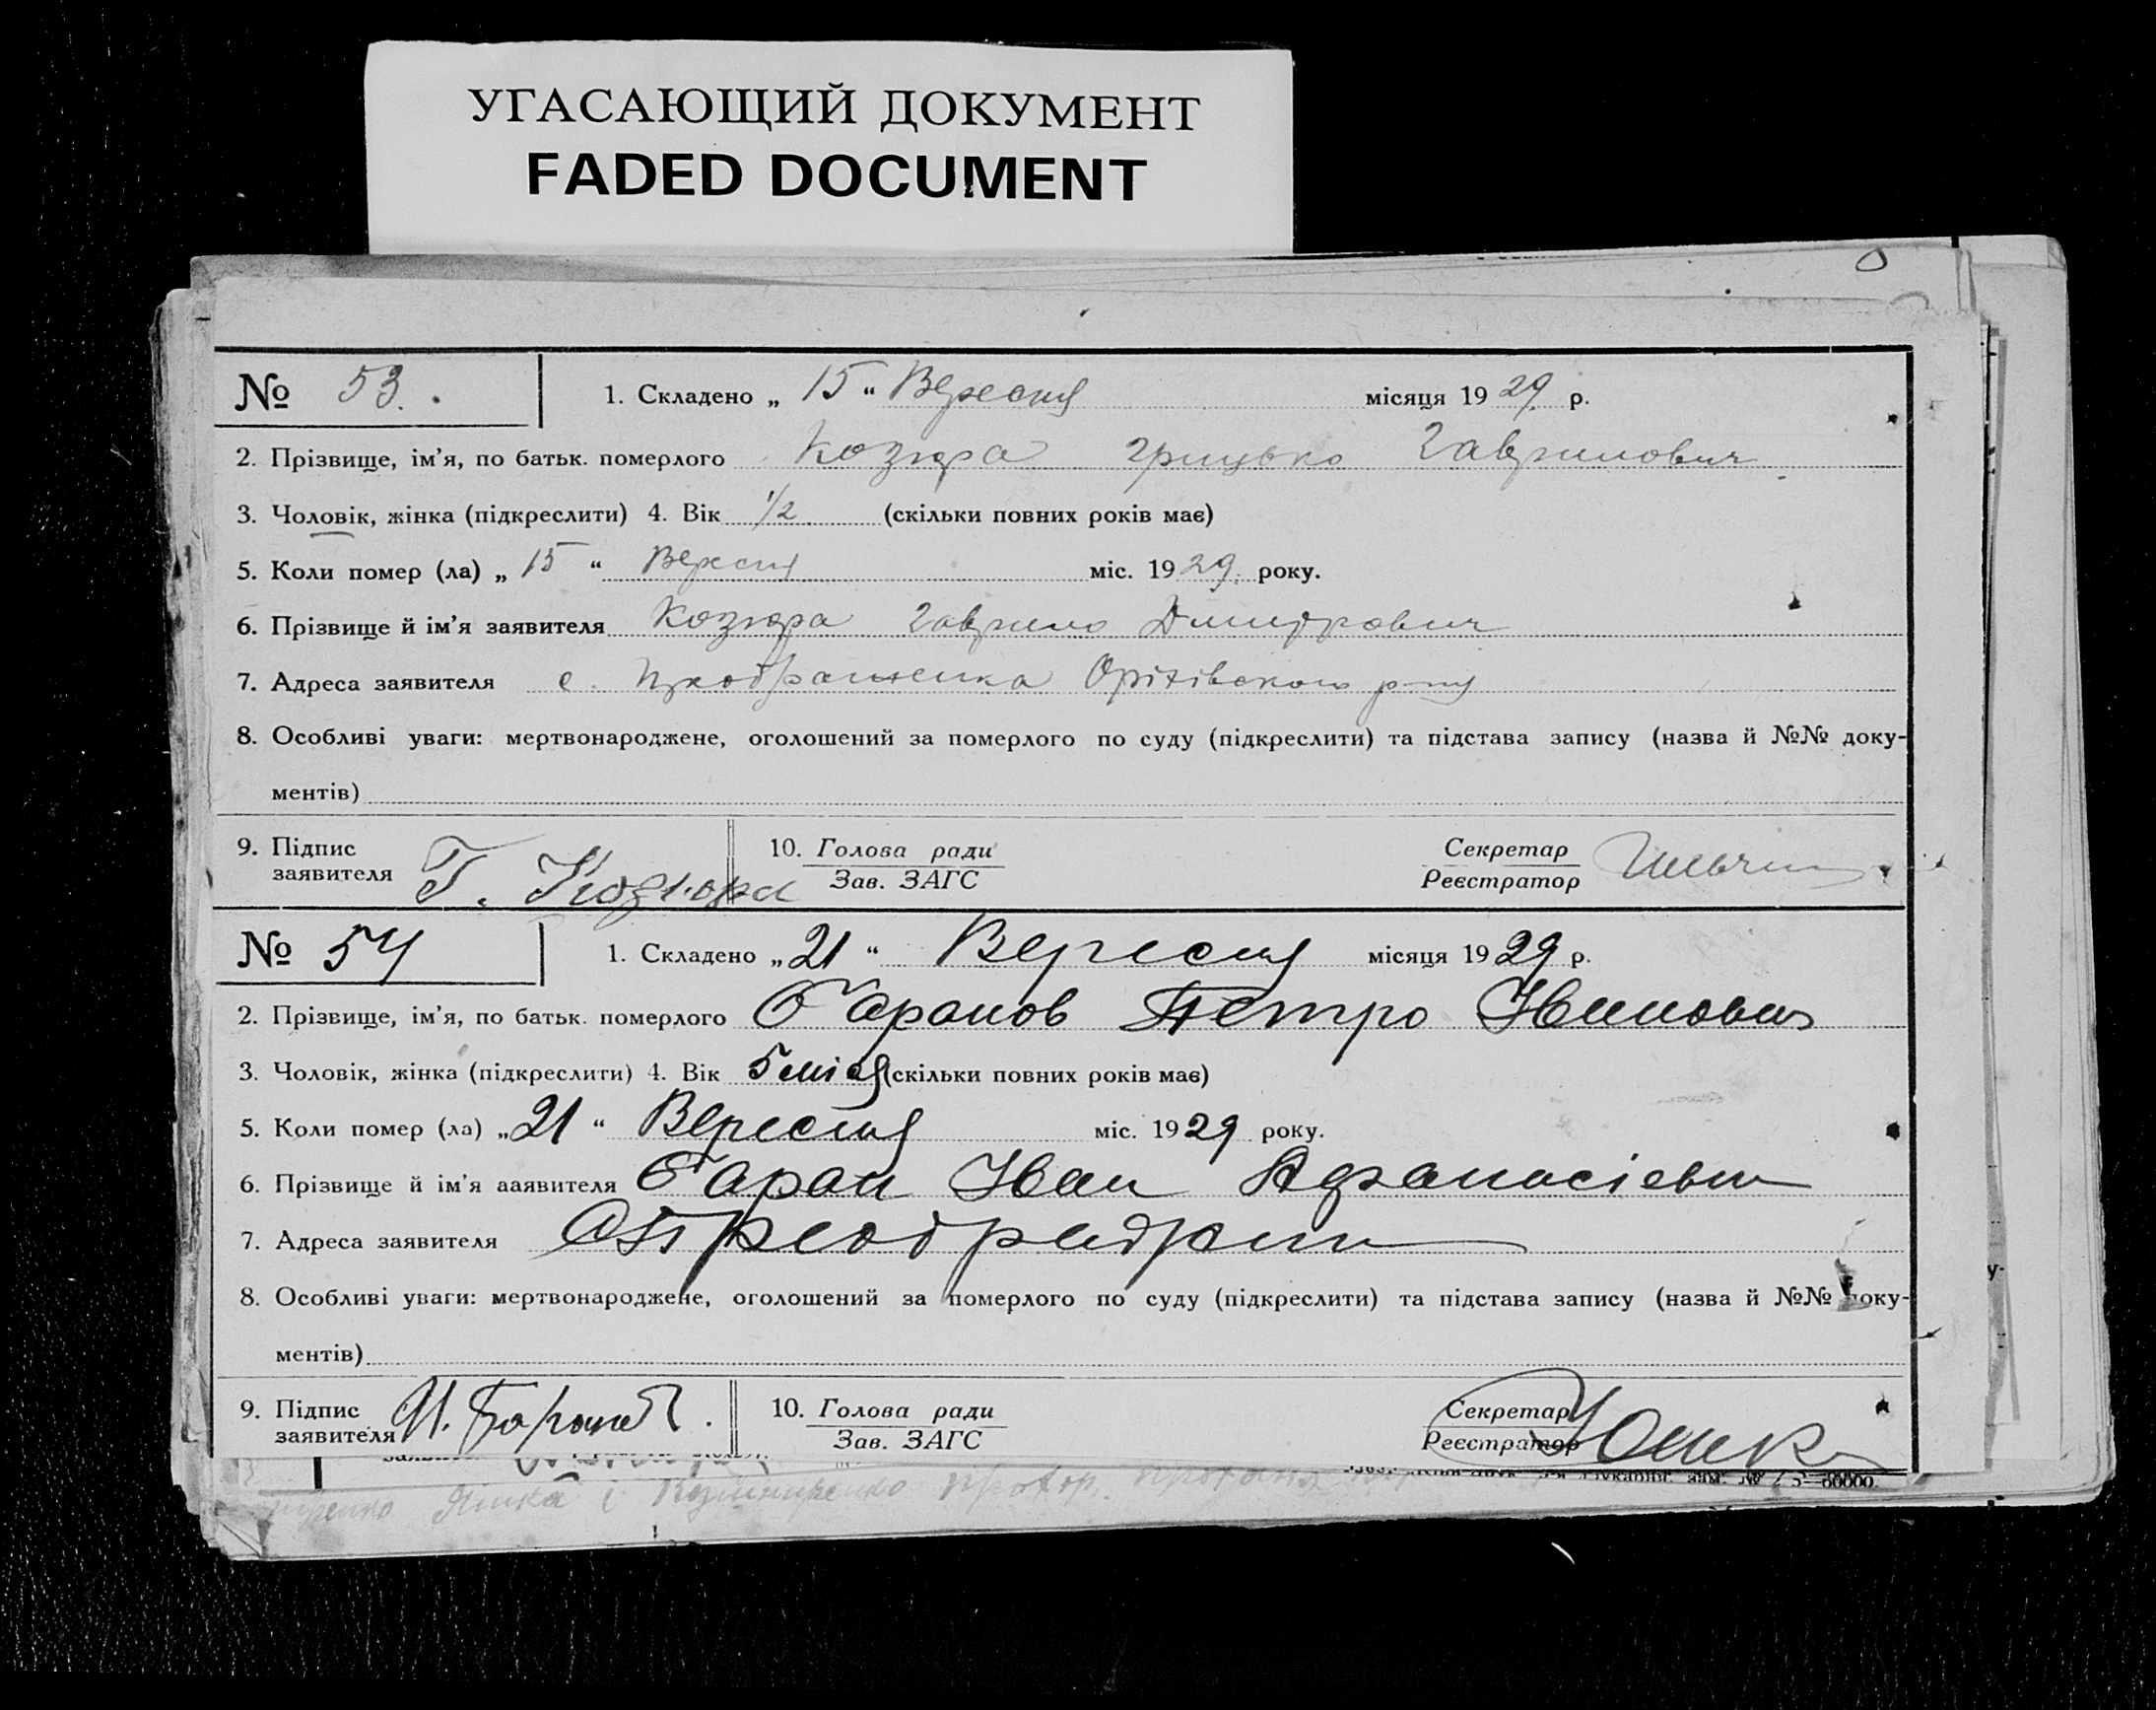 УГАСАЮЩИЙ ДОКУМЕНТ
FADED DOCUMENT
№ 53. 1. Складено „ 15 “ Вересня місяця 19 29 р.
2. Прізвище, ім’я, по батьк. померлого Козюра Грицько Гаврилович
3. Чоловік, жінка (підкреслити) 4. Вік 1/2 (скільки повних років має)
5. Коли помер (ла) „ 15 “ Вересня міс. 19 29 року.
6. Прізвище й ім’я заявителя Козюра Гаврило Дмитрович
7. Адреса заявителя с. Оріхівського р-ну
8. Особливі уваги: мертвонароджене, оголошений за померлого по суду (підкреслити) та підстава запису (назва й №№ доку-
ментів)
9. Підпис заявителя Г. Козюра 10. Голова ради Зав. ЗАГС Секретар Реєстратор
№ 54 1. Складено „ 21 “ Вересня місяця 19 29 р.
2. Прізвище, ім’я, по батьк. померлого Баранов Петро Іванович
3. Чоловік, жінка (підкреслити) 4. Вік 5 (скільки повних років має)
5. Коли помер (ла) „ 21 “ Вересня міс. 19 29 року.
6. Прізвище й ім’я ааявителя Баран Іван Афанасієвич
7. Адреса заявителя
8. Особливі уваги: мертвонароджене, оголошений за померлого по суду (підкреслити) та підстава запису (назва й №№ доку-
ментів)
9. Підпис заявителя И. Баранов. 10. Голова ради Зав. ЗАГС Секретар Реєстратор